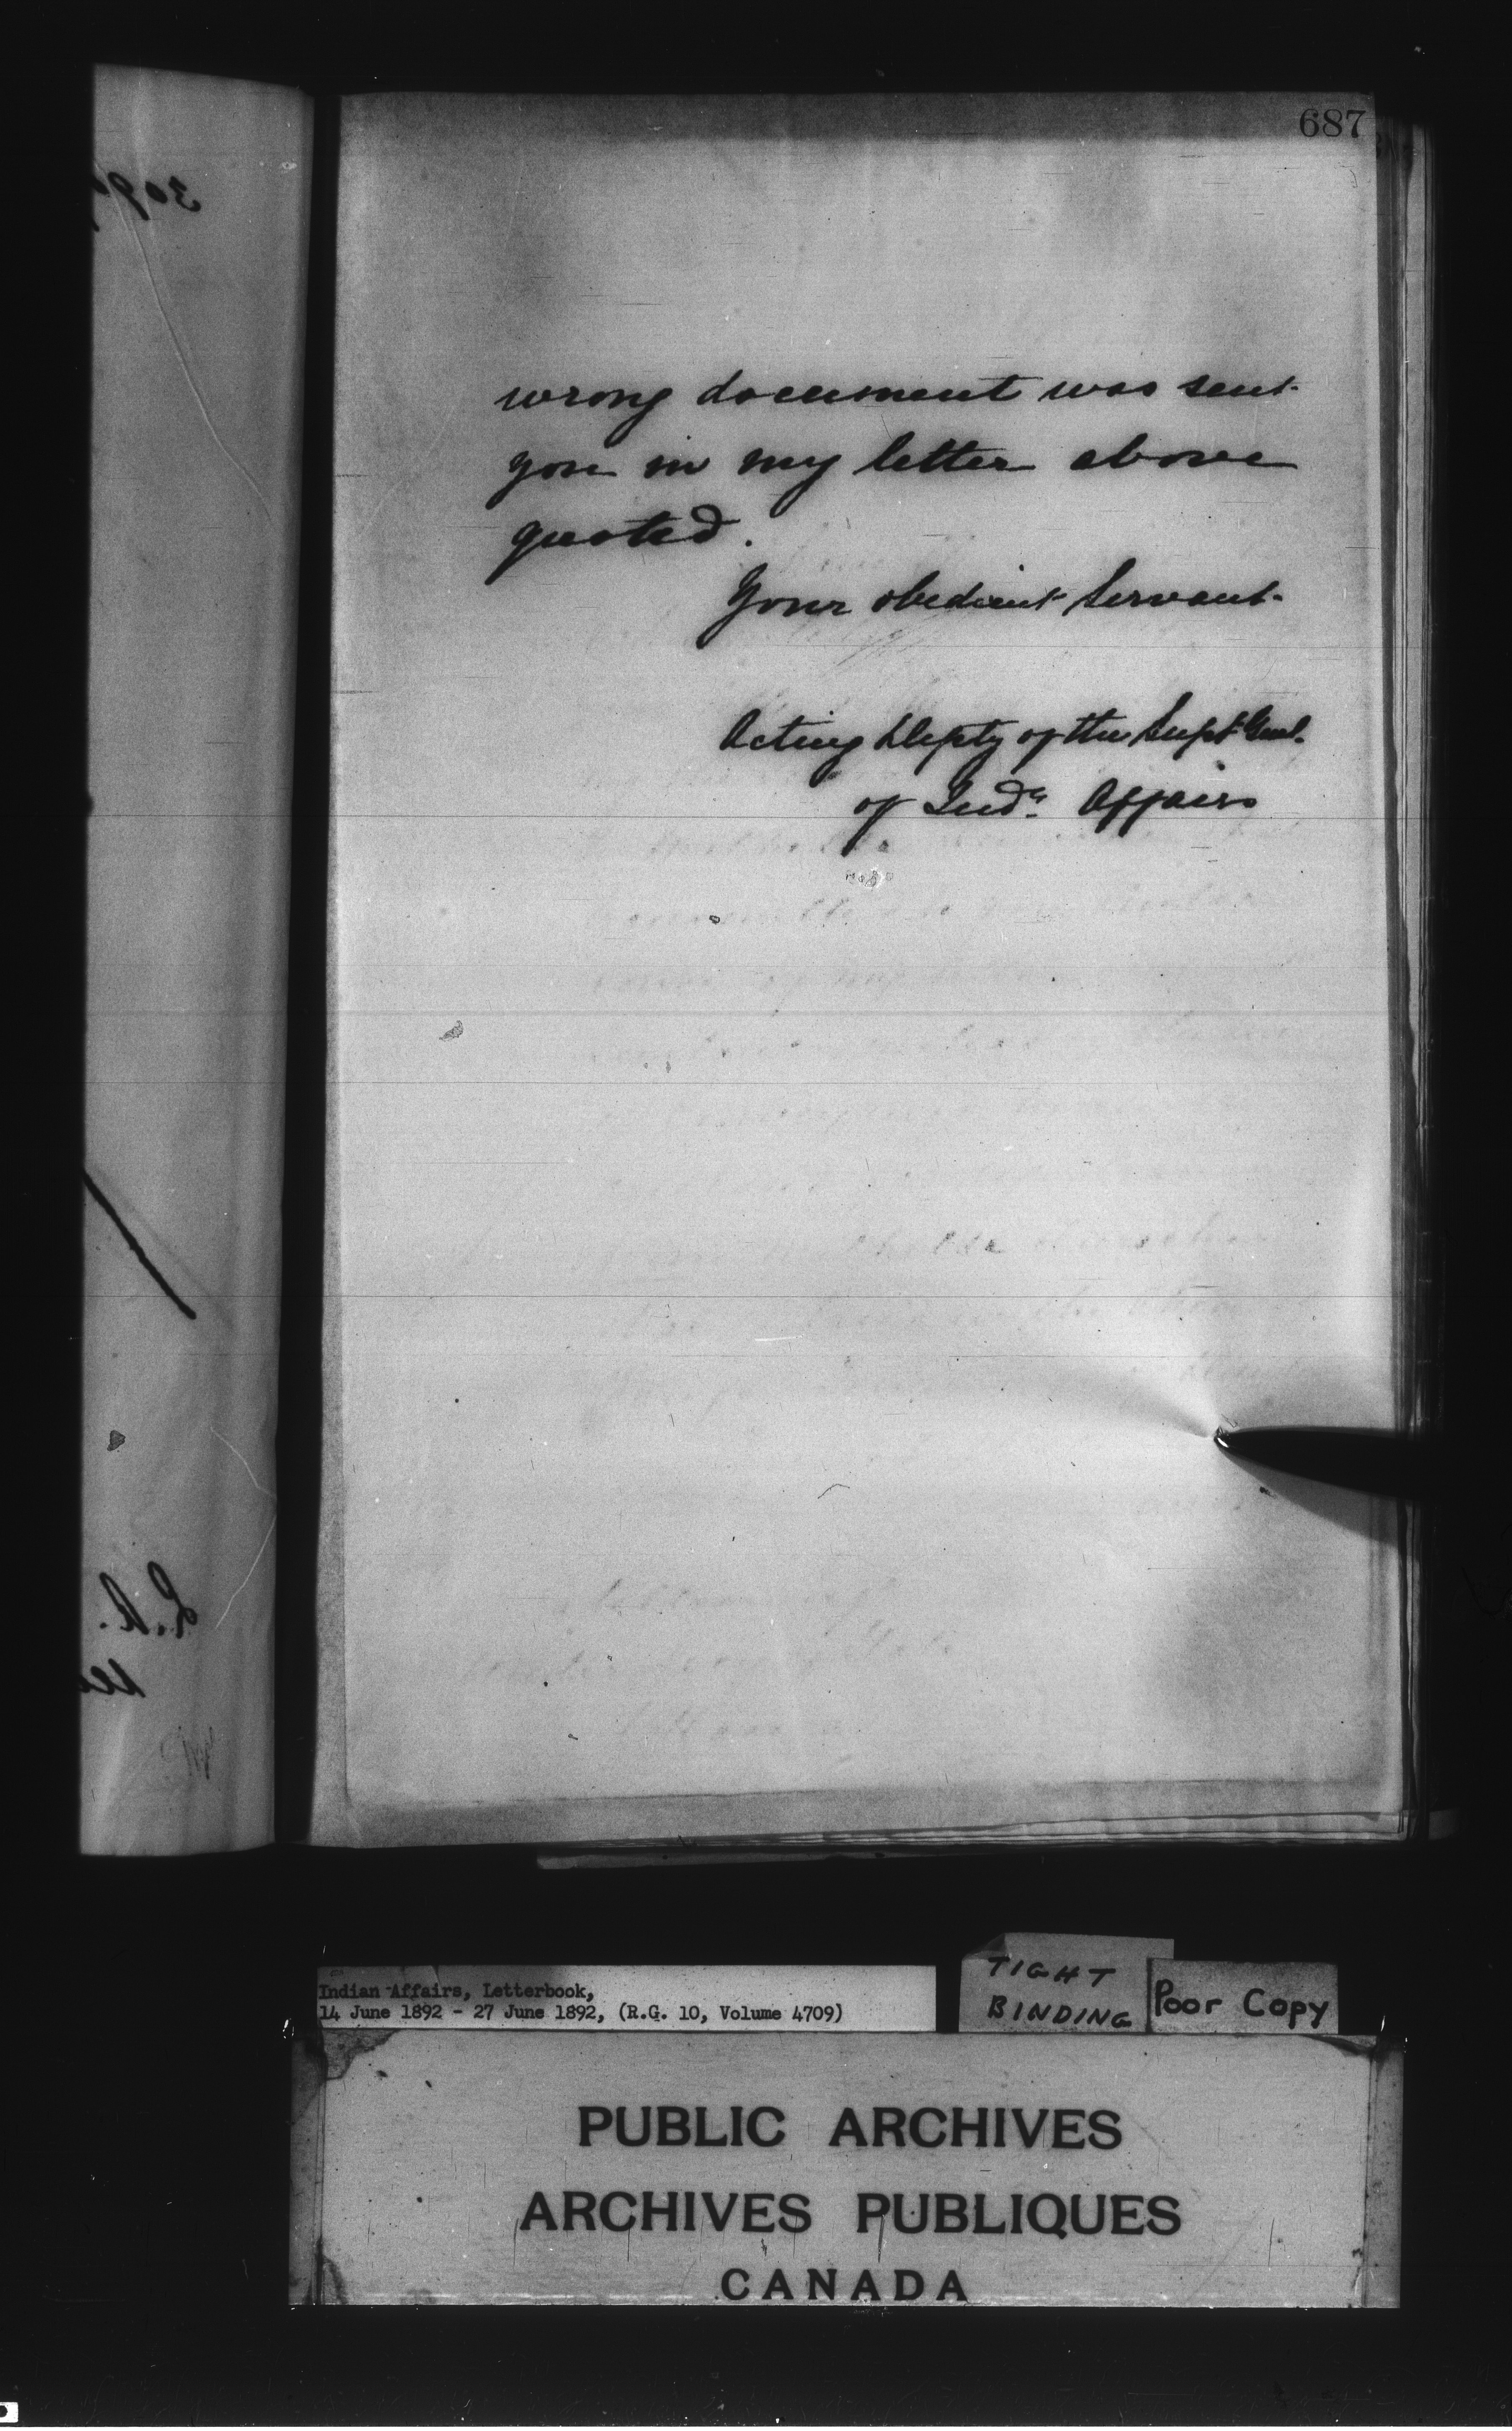 687
wrong document was sent
you in my letter above
quoted.
Your obedient Servant
Acting Depty of the Supt Genl.
of Indn Affairs
Indian Affairs, Letterbook,
14 June 1892 - 27 June 1892, (R.G. 10, Volume 4709)
TIGHT
BINDING
Poor Copy
PUBLIC ARCHIVES
ARCHIVES PUBLIQUES
CANADA